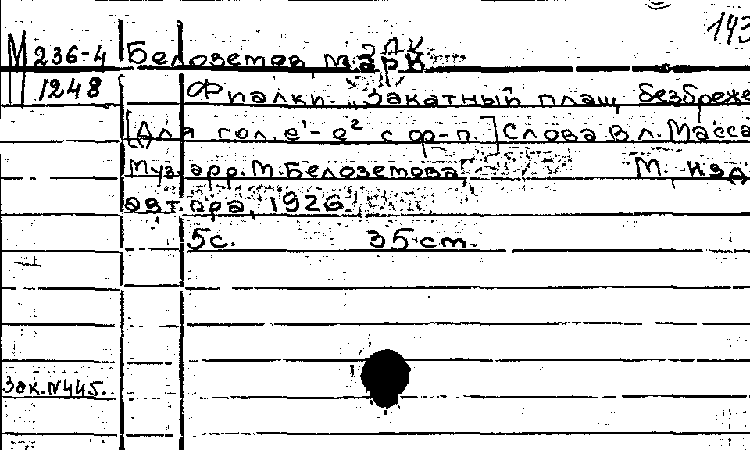 143
М 236-4 Белозетов, Марк
1248 Фиалки. "Закатный плащ безбреже
[Для гол. e¹-e² с ф-п.] Слова Вл. Масса
Муз. арр. М. Белозетова М, изд
автора, 1926.
5с. 35 ст.
Зак. №445.